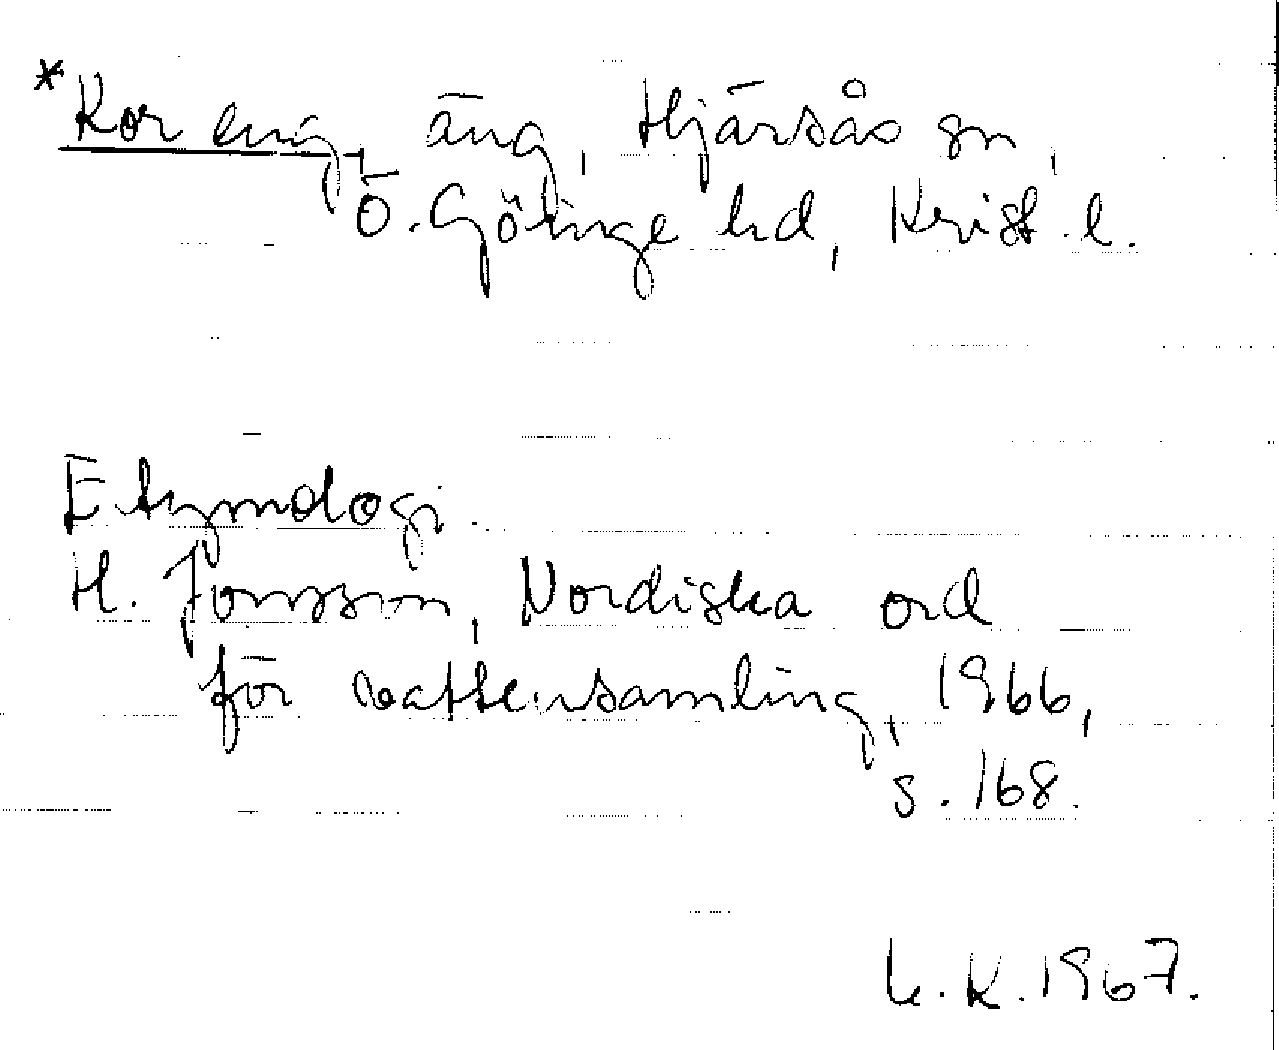 *Kor eng, äng, Hjärsås sn,
Ö. Göinge hd, Krist. l.
Etymologi
H. Jonsson, Nordiska ord
för vattensamling, 1966,
s. 168.
L. K. 1967.